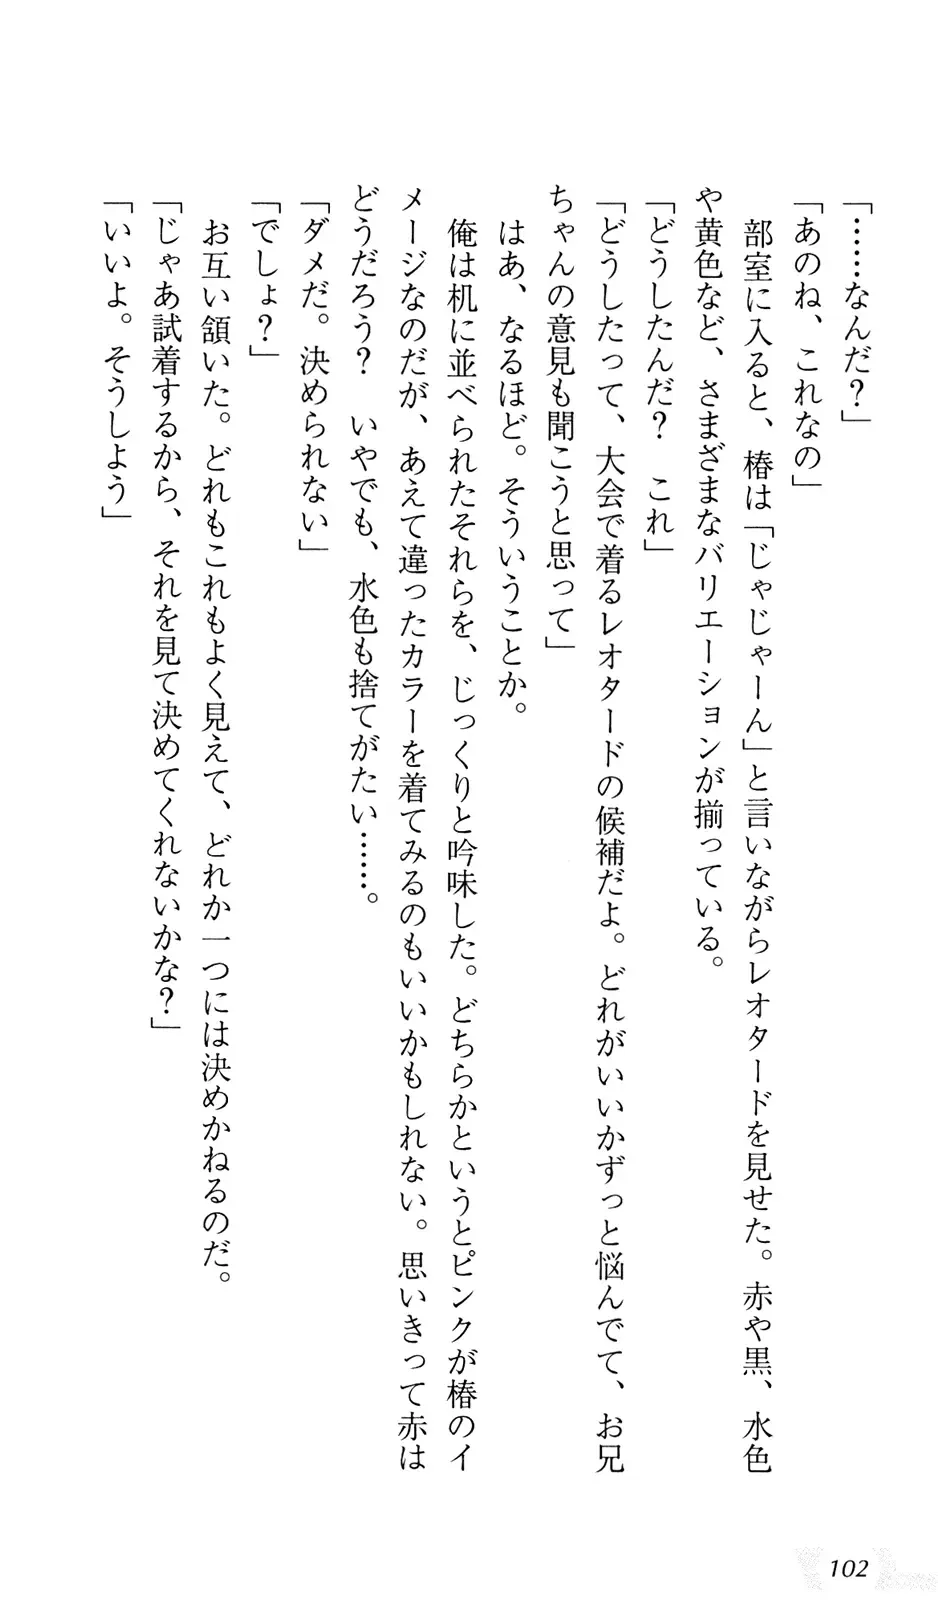 「……なんだ？」
「あのね、これなの」
　部室に入ると、椿は「じゃじゃーん」と言いながらレオタードを見せた。赤や黒、水色
や黄色など、さまざまなバリエーションが揃っている。
「どうしたんだ？　これ」
「どうしたって、大会で着るレオタードの候補だよ。どれがいいかずっと悩んでて、お兄
ちゃんの意見も聞こうと思って」
　はあ、なるほど。そういうことか。
　俺は机に並べられたそれらを、じっくりと吟味した。どちらかというとピンクが椿のイ
メージなのだが、あえて違ったカラーを着てみるのもいいかもしれない。思いきって赤は
どうだろう？　いやでも、水色も捨てがたい……。
「ダメだ。決められない」
「でしょ？」
　お互い頷いた。どれもこれもよく見えて、どれか一つには決めかねるのだ。
「じゃあ試着するから、それを見て決めてくれないかな？」
「いいよ。そうしよう」
102